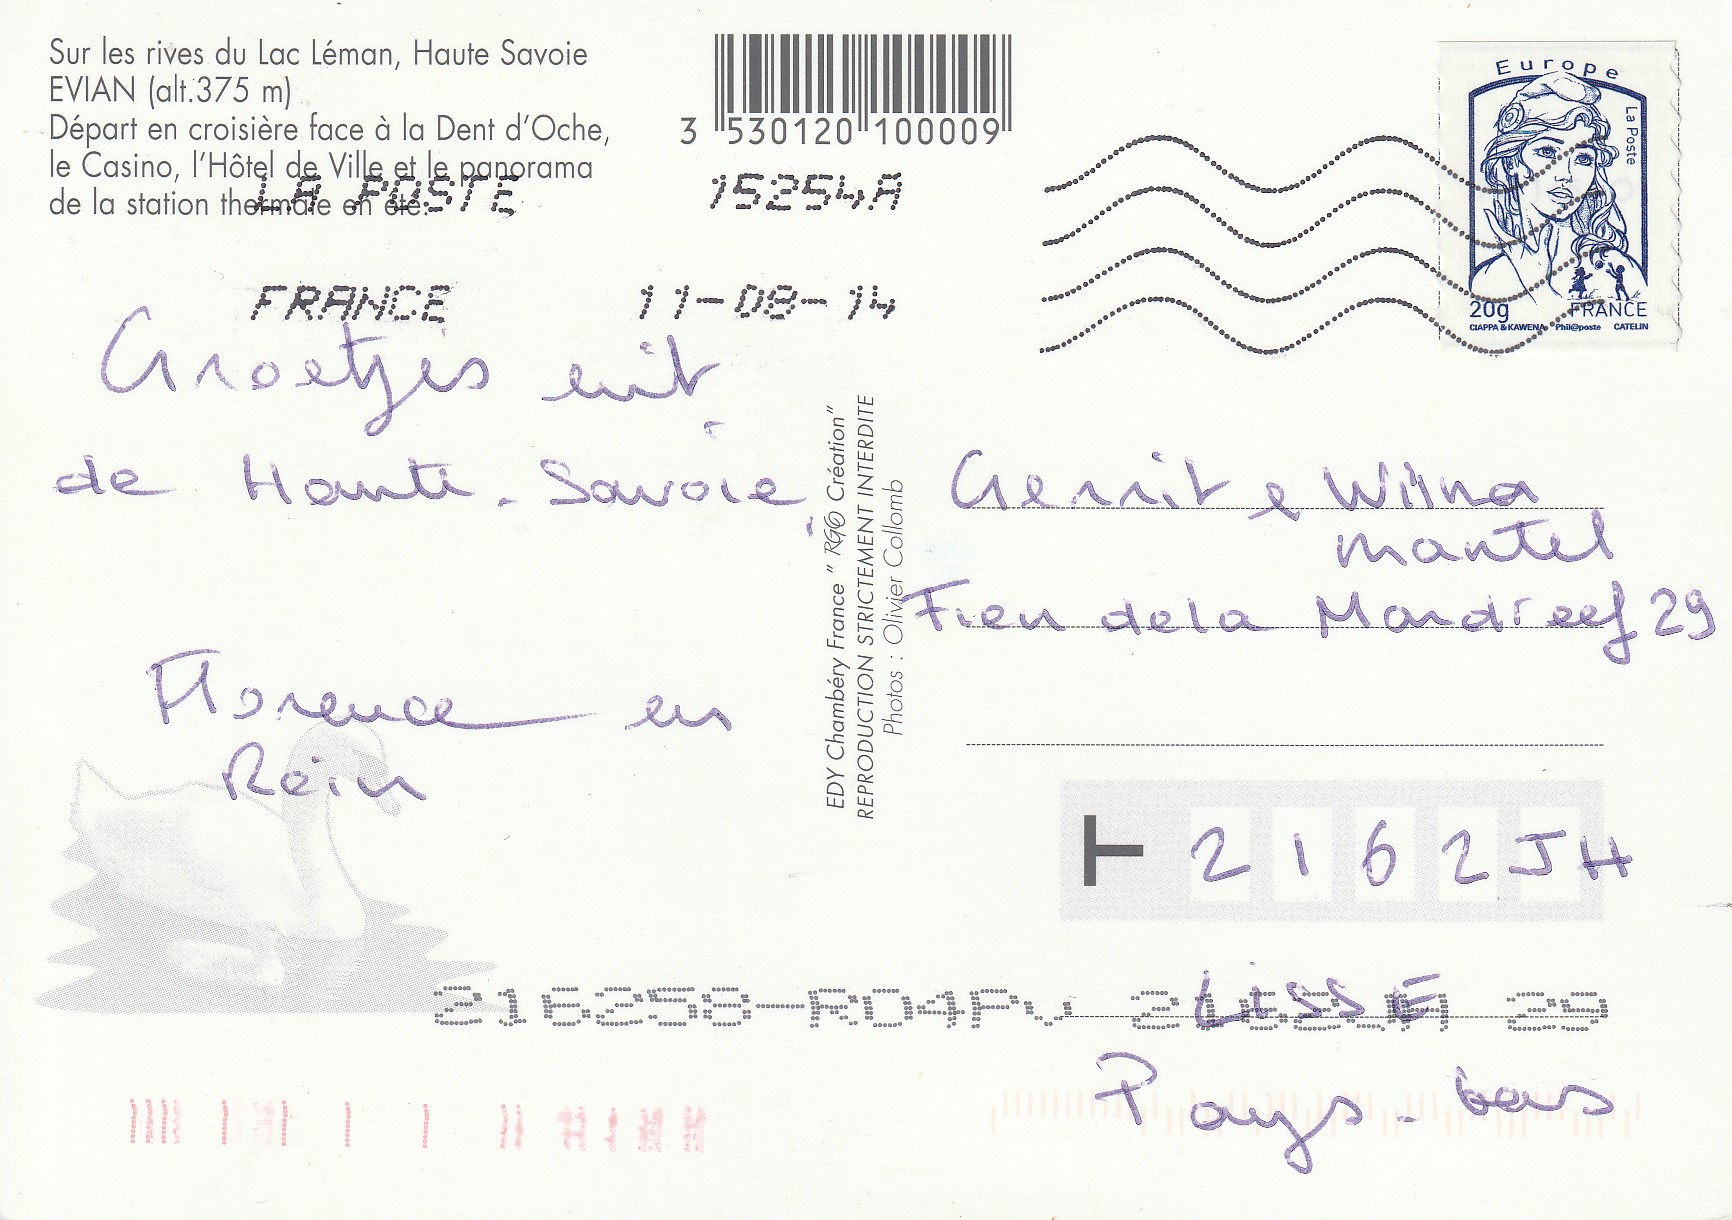 Sur les rives du Lac Léman, Haute Savoie
EVIAN (alt.375 m)
Départ en croisière face à la Dent d'Oche,
le Casino, l'Hôtel de Ville et le panorama
de la station thermale en été.
3 530120 100009
LA POSTE 15254A
FRANCE 11-08-14
Europe
La Poste
20g FRANCE
CIAPPA & KAWENA Phil@poste CATELIN
Groetjes uit
de Haute-Savoie,
Florence en
Rein
EDY Chambéry France " RGO Création"
REPRODUCTION STRICTEMENT INTERDITE
Photos : Olivier Collomb
Gerrit e Wilma
Mantel
29
T 2162JH
LISSE
216258-RD4PV 29
Pays-bas